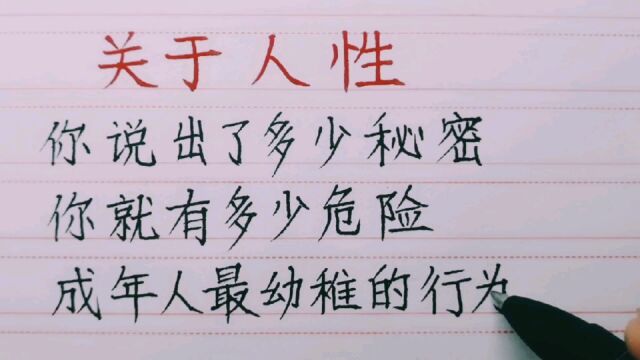 关于人性
你说出了多少秘密
你就有多少危险
成年人最幼稚的行为